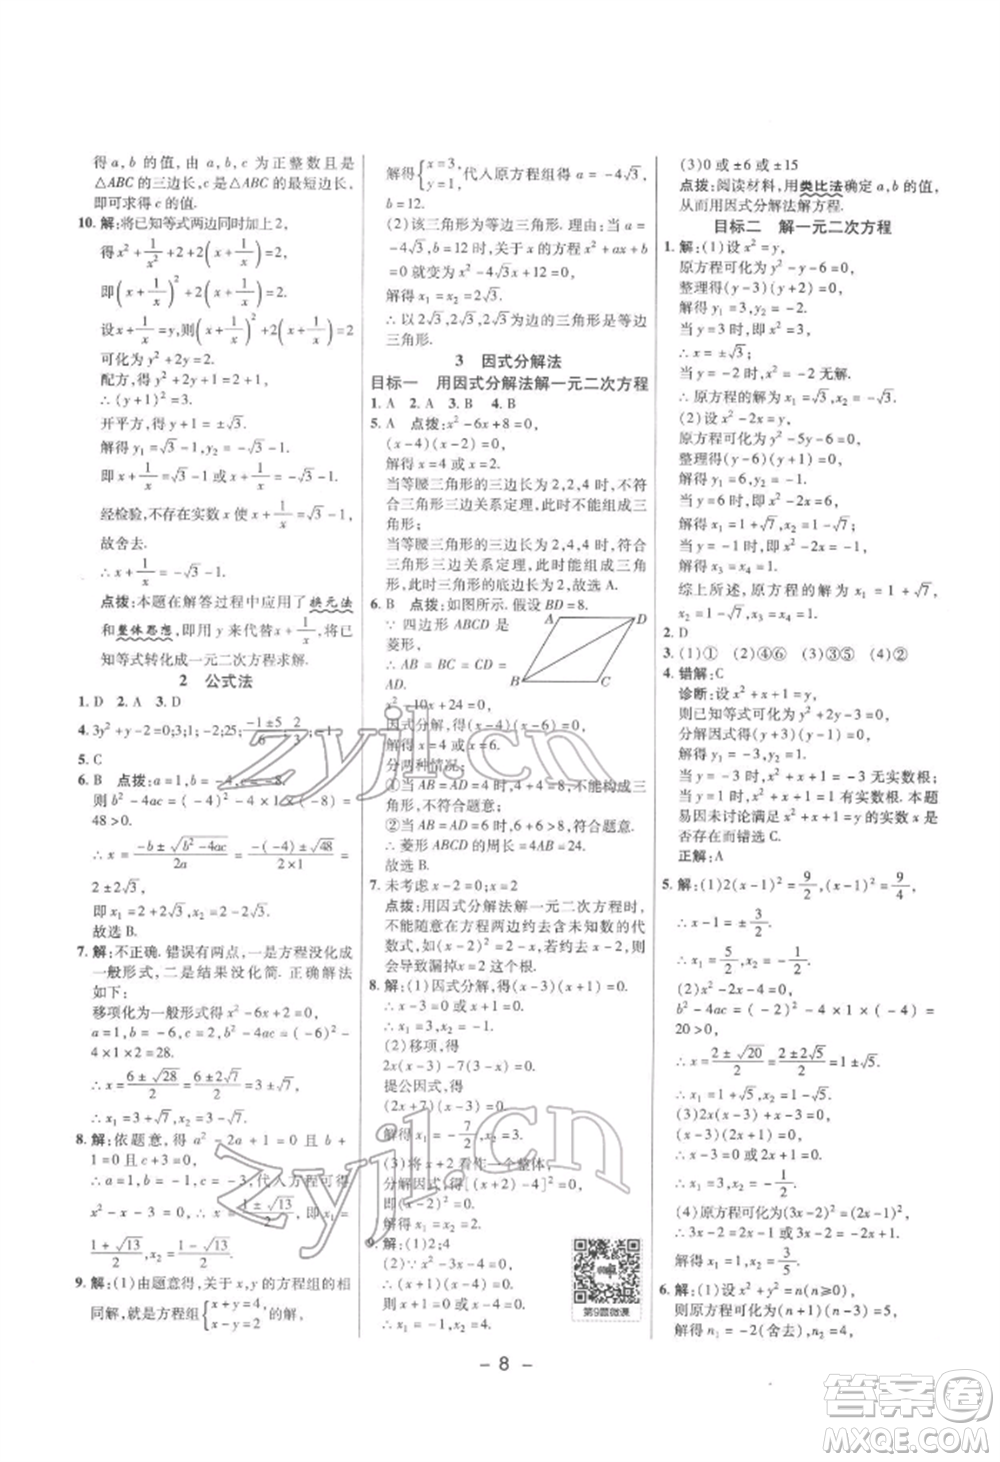 得 a, b 的值, 由 a, b, c 为正整数且是
△ABC 的三边长, c 是△ABC 的最短边长,
即可求得 c 的值.
10. 解: 将已知等式两边同时加上 2,
得 x²+1/x²+2+2(x+1/x)=2,
即(x+1/x)²+2(x+1/x)=2.
设 x+1/x=y, 则(x+1/x)²+2(x+1/x)=2
可化为 y²+2y=2.
配方, 得 y²+2y+1=2+1.
∴(y+1)²=3.
开平方, 得 y+1=±√3.
解得 y₁=√3-1, y₂=-√3-1.
即 x+1/x=√3-1 或 x+1/x=-√3-1.
经检验, 不存在实数 x 使 x+1/x=√3-1,
故舍去.
∴x+1/x=-√3-1.
点拨: 本题在解答过程中应用了换元法
和整体思想, 即用 y 来代替 x+1/x, 将已
知等式转化成一元二次方程求解.
2 公式法
1. D 2. A 3. D
4. 3y²+y-2=0;3;1;-2;25;
5. C
6. B 点拨: a=1, b=-4, c=-8.
则 b²-4ac=(-4)²-4×1×(-8)=
48>0.
∴x=(-b±√(b²-4ac))/2a=(-(-4)±√48)/(2×1)=
2±2√3,
即 x₁=2+2√3, x₂=2-2√3.
故选 B.
7. 解: 不正确. 错误有两点, 一是方程没化成
一般形式, 二是结果没化简. 正确解法
如下:
移项化为一般形式得 x²-6x+2=0,
a=1, b=-6, c=2, b²-4ac=(-6)²-
4×1×2=28.
∴x=(6±√28)/2=(6±2√7)/2=3±√7.
∴x₁=3+√7, x₂=3-√7.
8. 解: 依题意, 得 a²-2a+1=0 且 b+
3=0. ∴a=1, b=-3, 代入方程可得
x²-x-3=0. ∴x=(1±√13)/2, 即 x₁=
(1+√13)/2, x₂=(1-√13)/2.
9. 解: (1)由题意得, 关于 x, y 的方程组的相
同解, 就是方程组{x+y=4, x-y=2 的解,
解得{x=3, y=1, 代入原方程组得 a=-4√3,
b=12.
(2)该三角形为等边三角形, 理由: 当 a=
-4√3, b=12 时, 关于 x 的方程 x²+ax+b
=0 就变为 x²-4√3x+12=0,
解得 x₁=x₂=2√3.
∴以 2√3, 2√3, 2√3 为三边的三角形是等边
三角形.
3 因式分解法
目标一 用因式分解法解一元二次方程
1. A 2. A 3. B 4. B
5. A 点拨: x²-6x+8=0,
(x-4)(x-2)=0,
解得 x=4 或 x=2.
当等腰三角形的三边长为 2, 2, 4 时, 不符
合三角形三边关系定理, 此时不能组成三
角形;
当等腰三角形的三边长为 2, 4, 4 时, 符合
三角形三边关系定理, 此时能组成三角
形, 此时三角形的底边长为 2, 故选 A.
6. B 点拨: 如图所示. 假设 BD=8.
∵四边形 ABCD 是
菱形,
∴AB=BC=CD=
AD.
x²-10x+24=0,
因式分解, 得(x-4)(x-6)=0,
解得 x=4 或 x=6.
分两种情况:
①当 AB=AD=4 时, 4+4=8, 不能构成三
角形, 不符合题意;
②当 AB=AD=6 时, 6+6>8, 符合题意.
∴菱形 ABCD 的周长=4AB=24.
故选 B.
A D
B C
7. 未考虑 x-2=0
点拨: 用因式分解法解一元二次方程时,
不能随意在方程两边约去含未知数的代
数式, 如(x-2)²=x-2, 若约去 x-2, 则
会导致漏掉 x=2 这个根.
8. 解: (1)因式分解, 得(x-3)(x+1)=0,
∴x-3=0 或 x+1=0.
∴x₁=3, x₂=-1.
(2)移项, 得
2x(x-3)-7(3-x)=0,
提公因式, 得
(2x+7)(x-3)=0,
解得 x₁=-7/2, x₂=3.
(3)将 x+2 看作一个整体,
分解因式, 得[(x+2)-4]²=0,
即(x-2)²=0.
解得 x₁=x₂=2.
9. 解: (1)2;4
(2)∵x²-5x+4=0,
∴(x-1)(x-4)=0,
则 x-1=0 或 x-4=0,
∴x₁=1, x₂=4.
第9题微课
(3)0 或 ±6 或 ±15
点拨: 阅读材料, 用类比法确定 a, b 的值,
从而用因式分解法解方程.
目标二 解一元二次方程
1. 解: (1)设 x²=y,
原方程可化为 y²-y-6=0,
整理得(y-3)(y+2)=0,
解得 y₁=3, y₂=-2.
当 y=3 时, 即 x²=3,
∴x=±√3;
当 y=-2 时, x²=-2 无解.
∴原方程的解为 x₁=√3, x₂=-√3.
(2)设 x²-2x=y,
原方程可化为 y²-5y-6=0,
整理得(y-6)(y+1)=0,
解得 y₁=6, y₂=-1.
当 y=6 时, 即 x²-2x=6,
解得 x₁=1+√7, x₂=1-√7;
当 y=-1 时, 即 x²-2x=-1,
解得 x₃=x₄=1.
综上所述, 原方程的解为 x₁=1+√7,
x₂=1-√7, x₃=x₄=1.
2. D
3. (1)① (2)④⑥ (3)③⑤ (4)②
4. 错解: C
诊断: 设 x²+x=y,
则已知等式可变为 y²-2y-3=0,
分解因式得(y-3)(y+1)=0,
∴y₁=3, y₂=-1.
当 x²+x=3 时, 有实数根;
当 x²+x=-1 时, Δ<0, 方程无实数根.
∴x²+x+1=3+1=4. 本题
易因未讨论满足 x²+x=-1 的实数 x 是
否存在而错选 C.
正解: A
5. 解: (1)2(x-1)²=9/2, (x-1)²=9/4,
∴x-1=±3/2.
∴x₁=5/2, x₂=-1/2.
(2)x²-2x-4=0.
b²-4ac=(-2)²-4×1×(-4)=
20>0,
∴x=(2±√20)/2=(2±2√5)/2=1±√5,
∴x₁=1+√5, x₂=1-√5.
(3)2x(x-2)+(x-2)=0,
(x-2)(2x+1)=0,
∴x-2=0 或 2x+1=0.
∴x₁=2, x₂=-1/2.
(4)原方程可化为(3x-2)²=(2x-1)²,
∴3x-2=2x-1 或 3x-2=1-2x,
解得 x₁=1, x₂=3/5.
6. 解: (1)设 x²+y²=n(n≥0),
则原方程可化为(n+1)(n-3)=5,
解得 n₁=-2(舍去), n₂=4.
- 8 -
zyjl.cn
zyjl.cn
答案圈
MXQE.COM